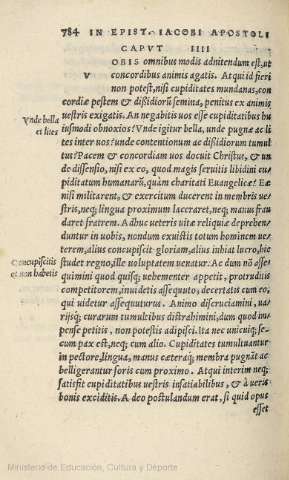 784 IN EPIST. IACOBI APOSTOLI
CAPVT IIII
OBIS omnibus modis adnitendum est, ut
V concordibus animis agatis. Atqui id fieri
non potest, nisi cupiditates mundanas, con
cordiæ pestem & dissidiorũ semina, penitus ex animis
Vnde bella
et lites
uestris exigatis. An negabitis uos esse cupiditatibus hu
iusmodi obnoxios? Vnde igitur bella, unde pugnæ ac li
tes inter uos? unde contentionum ac dissidiorum tumul
tus? Pacem & concordiam uos docuit Christus, & un
de dissensio, nisi ex eo, quod magis seruitis libidini cu
piditatum humanarũ, quàm charitati Euangelicæ? Ea
nisi militarent, & exercitum ducerent in membris ue
stris, neq; lingua proximum laceraret, neq; manus frau
daret fratrem. Adhuc ueteris uitæ reliquiæ deprehen
duntur in uobis, nondum exuistis totum hominem ue
terem, alius concupiscit gloriam, alius inhiat lucro, hic
Concupiscitis
et non habetis
studet regno, ille uoluptatem uenatur. Ac dum nõ asse
quimini quod quisq; uehementer appetit, protruditis
competitorem, inuidetis assequuto, decertatis cum eo,
qui uidetur assequuturus. Animo discruciamini, ua/
rijsq; curarum tumultibus distrahimini, dum quod im/
pense petitis, non potestis adipisci. Ita nec unicuiq; se/
cum pax est, neq; cum alio. Cupiditates tumultuantur
in pectore, lingua, manus cæteraq; membra pugnãt ac
belligerantur foris cum proximo. Atqui interim neq;
satisfit cupiditatibus uestris insatiabilibus, & à ueris
bonis exciditis. A deo postulandum erat, si quid opus
esset
Ministerio de Educación, Cultura y Deporte